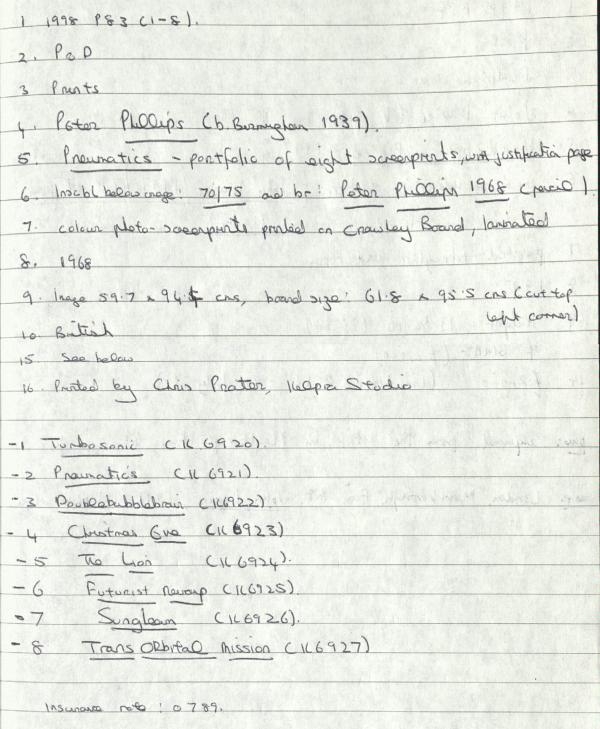 1 1998 P83 (1-8).
2. P&D
3 Prints
4. Peter Phillips (b. Birmingham 1939).
5. Pneumatics - portfolio of eight screenprints, with justification page
6. Inscbl below image: 70/75 and br: Peter Phillips 1968 (pencil).
7. colour photo-screenprints printed on Crawley Board, laminated
8. 1968
9. Image 59.7 x 94.5 cms, board size: 61.8 x 95.5 cms (cut top
left corner)
10 British
15 See below
16 Printed by Chris Prater, Kelpra Studio
-1 Turbosonic (K6920).
-2 Pneumatics (K6921).
-3 Doublebubblebrain (K6922)
-4 Christmas Eve (K6923)
-5 The Lion (K6924).
-6 Futurist Revamp (K6925)
-7 Sungleam (K6926).
-8 Trans Orbital Mission (K6927)
Insurance note: 0789.